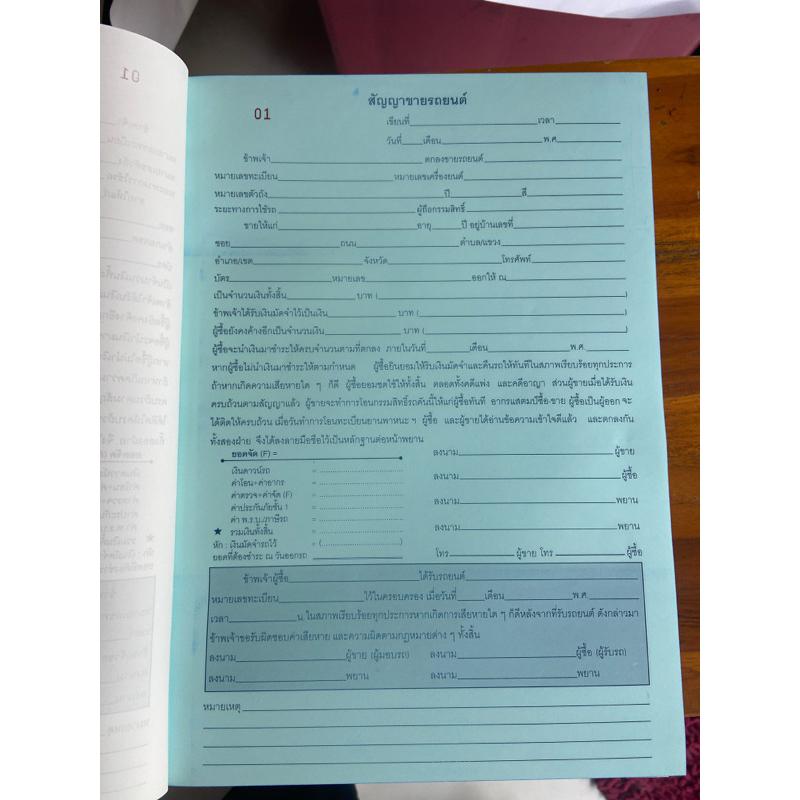 สัญญาขายรถยนต์
01
เขียนที่ เวลา
วันที่ เดือน พ.ศ.
ข้าพเจ้า ตกลงขายรถยนต์
หมายเลขทะเบียน หมายเลขเครื่องยนต์
หมายเลขตัวถัง ปี สี
ระยะทางการใช้รถ ผู้ถือกรรมสิทธิ์
ขายให้แก่ อายุ ปี อยู่บ้านเลขที่
ซอย ถนน ตำบล/แขวง
อำเภอ/เขต จังหวัด โทรศัพท์
บัตร หมายเลข ออกให้ ณ
เป็นจำนวนเงินทั้งสิ้น บาท ( )
ข้าพเจ้าได้รับเงินมัดจำไว้เป็นเงิน บาท ( )
ผู้ซื้อยังคงค้างอีกเป็นจำนวนเงิน บาท ( )
ผู้ซื้อจะนำเงินมาชำระให้ครบจำนวนตามที่ตกลง ภายในวันที่ เดือน พ.ศ.
หากผู้ซื้อไม่นำเงินมาชำระให้ตามกำหนด ผู้ซื้อยินยอมให้ริบเงินมัดจำและคืนรถให้ทันทีในสภาพเรียบร้อยทุกประการ
ถ้าหากเกิดความเสียหายใด ๆ ก็ดี ผู้ซื้อยอมชดใช้ให้ทั้งสิ้น ตลอดทั้งคดีแพ่ง และคดีอาญา ส่วนผู้ขายเมื่อได้รับเงิน
ครบถ้วนตามสัญญาแล้ว ผู้ขายจะทำการโอนกรรมสิทธิ์รถคันนี้ให้แก่ผู้ซื้อทันที อากรแสตมป์ซื้อ-ขาย ผู้ซื้อเป็นผู้ออก จะ
ได้ติดให้ครบถ้วน เมื่อวันทำการโอนทะเบียนยานพาหนะ ฯ ผู้ซื้อ และผู้ขายได้อ่านข้อความเข้าใจดีแล้ว และตกลงกัน
ทั้งสองฝ่าย จึงได้ลงลายมือชื่อไว้เป็นหลักฐานต่อหน้าพยาน
ยอดจัด (F) =
เงินดาวน์รถ =
ค่าโอน+ค่าอากร =
ค่าตรวจ+ค่าจัด (F) =
ค่าประกันภัยชั้น 1 =
ค่า พ.ร.บ./ภาษีรถ =
★ รวมเงินทั้งสิ้น =
หัก : เงินมัดจำรถไว้ = ( )
ยอดที่ต้องชำระ ณ วันออกรถ
ลงนาม ผู้ขาย
ลงนาม ผู้ซื้อ
ลงนาม พยาน
ลงนาม พยาน
โทร ผู้ขาย โทร ผู้ซื้อ
ข้าพเจ้าผู้ซื้อ ได้รับรถยนต์
หมายเลขทะเบียน ไว้ในครอบครอง เมื่อวันที่ เดือน พ.ศ.
เวลา น ในสภาพเรียบร้อยทุกประการหากเกิดการเสียหายใด ๆ ก็ดีหลังจากที่รับรถยนต์ ดังกล่าวมา
ข้าพเจ้าขอรับผิดชอบค่าเสียหาย และความผิดตามกฎหมายต่าง ๆ ทั้งสิ้น
ลงนาม ผู้ขาย (ผู้มอบรถ) ลงนาม ผู้ซื้อ (ผู้รับรถ)
ลงนาม พยาน ลงนาม พยาน
หมายเหตุ